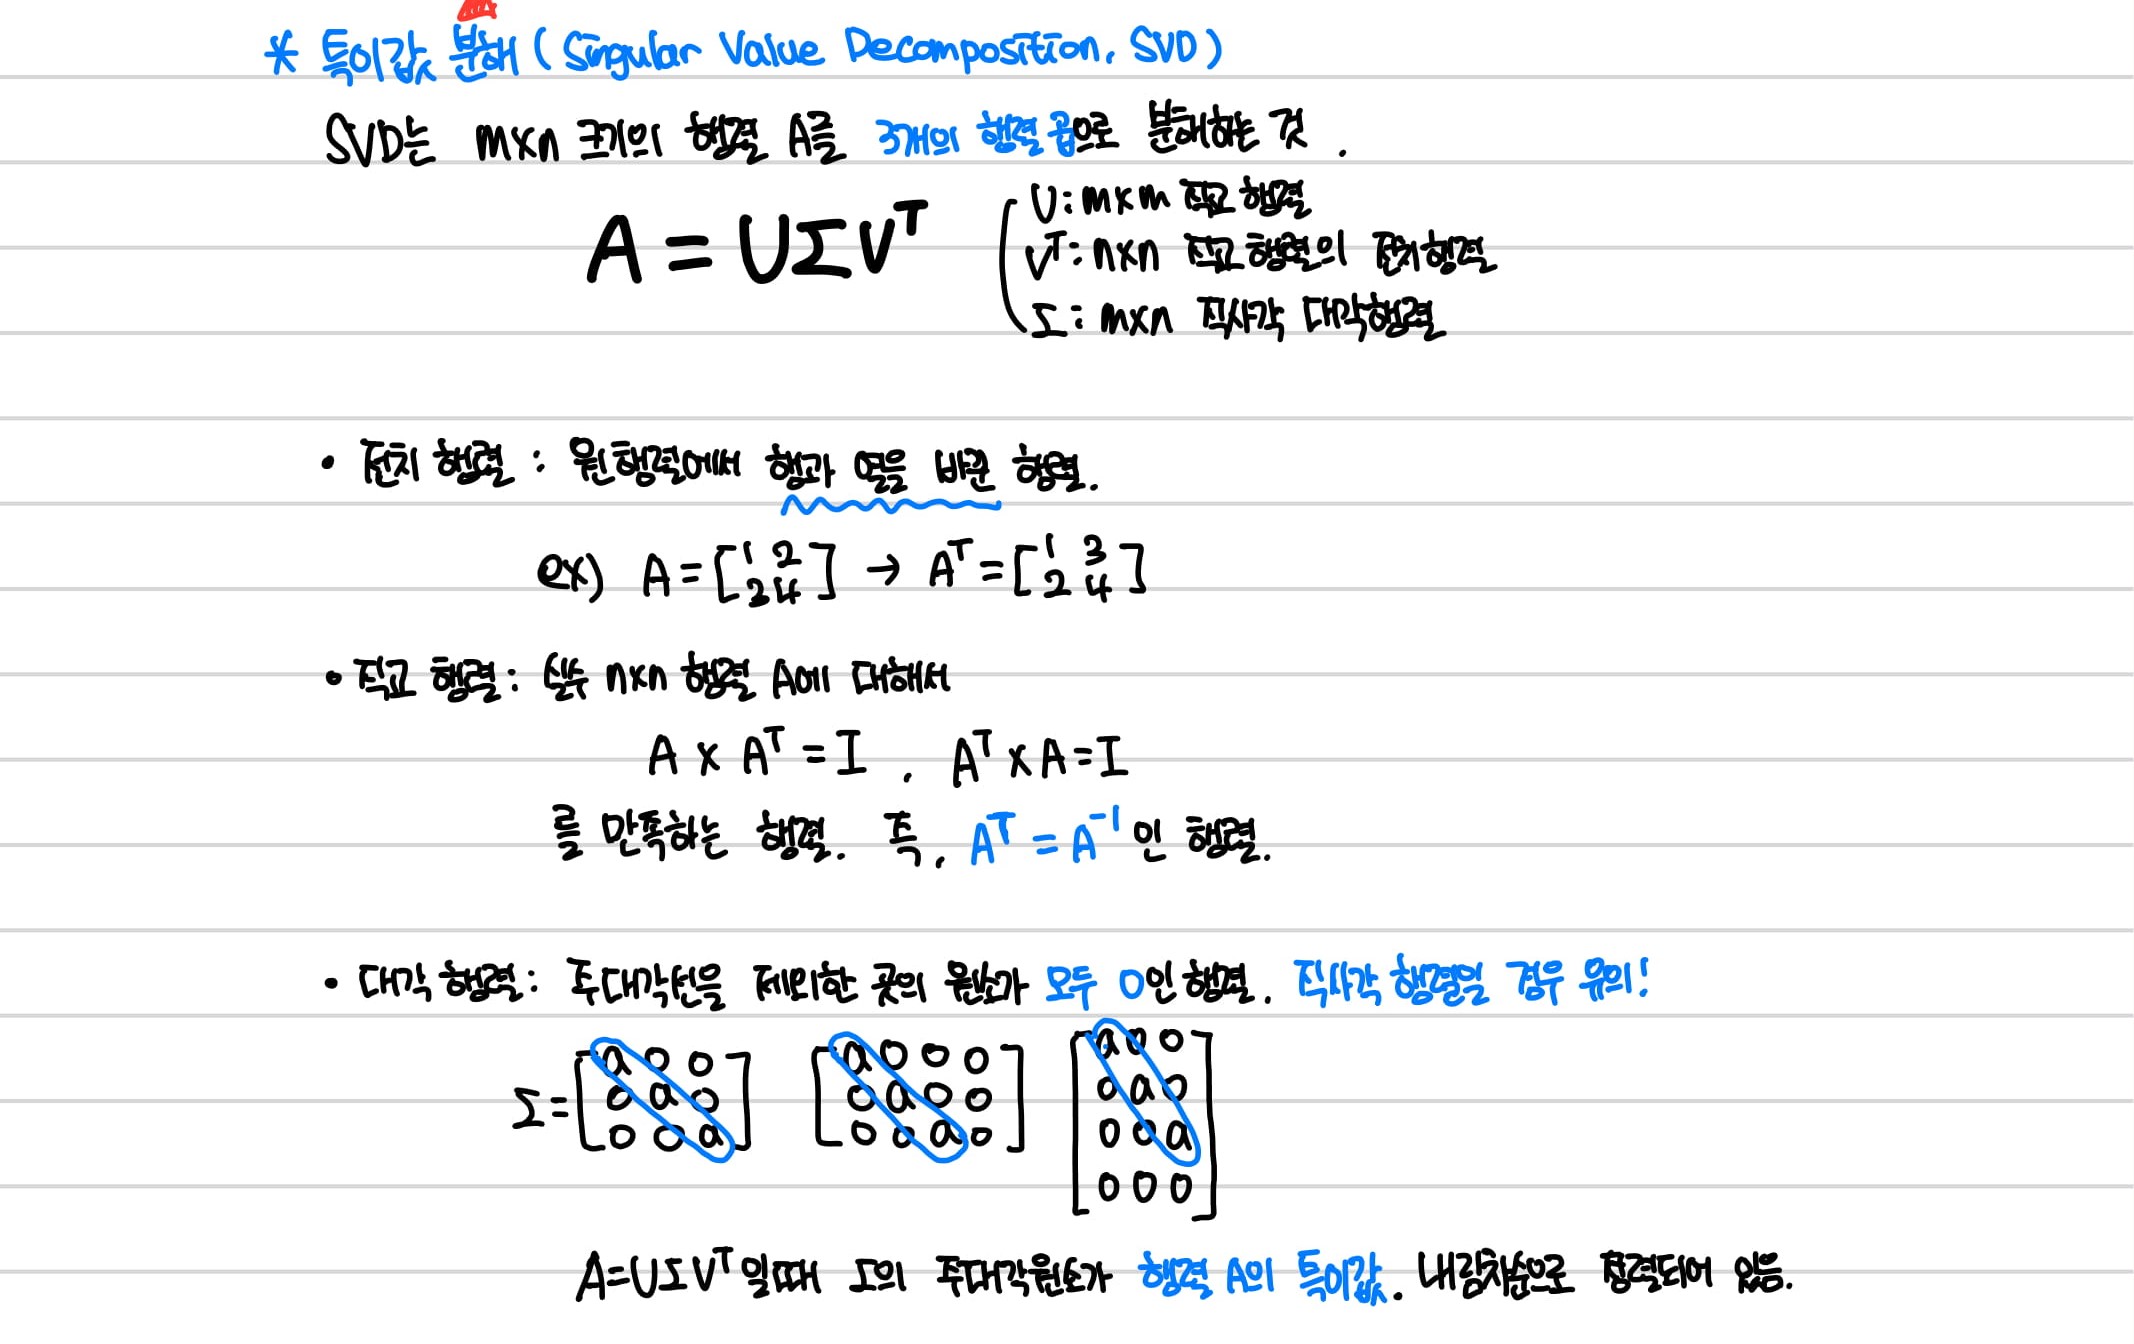 * 특이값 분해 (Singular Value Decomposition, SVD)
SVD는 m×n 크기의 행렬 A를 3개의 행렬 곱으로 분해하는 것.
A = UΣVᵀ
U: m×m 직교 행렬
Vᵀ: n×n 직교 행렬의 전치행렬
Σ: m×n 직사각 대각행렬
• 전치 행렬 : 원행렬에서 행과 열을 바꾼 행렬.
ex) A = [1 2 → Aᵀ = [1 3
3 4] 2 4]
• 직교 행렬 : 실수 n×n 행렬 A에 대해서
A × Aᵀ = I , Aᵀ × A = I
를 만족하는 행렬. 즉, Aᵀ = A⁻¹ 인 행렬.
• 대각 행렬 : 주대각선을 제외한 곳의 원소가 모두 0인 행렬. 직사각 행렬일 경우 유의!
Σ = [a 0 0 [a 0 0 0 [a 0 0
0 a 0 0 a 0 0 0 a 0
0 0 a] 0 0 a 0] 0 0 a
0 0 0]
A=UΣVᵀ 일때 Σ의 주대각원소가 행렬 A의 특이값. 내림차순으로 정렬되어 있음.